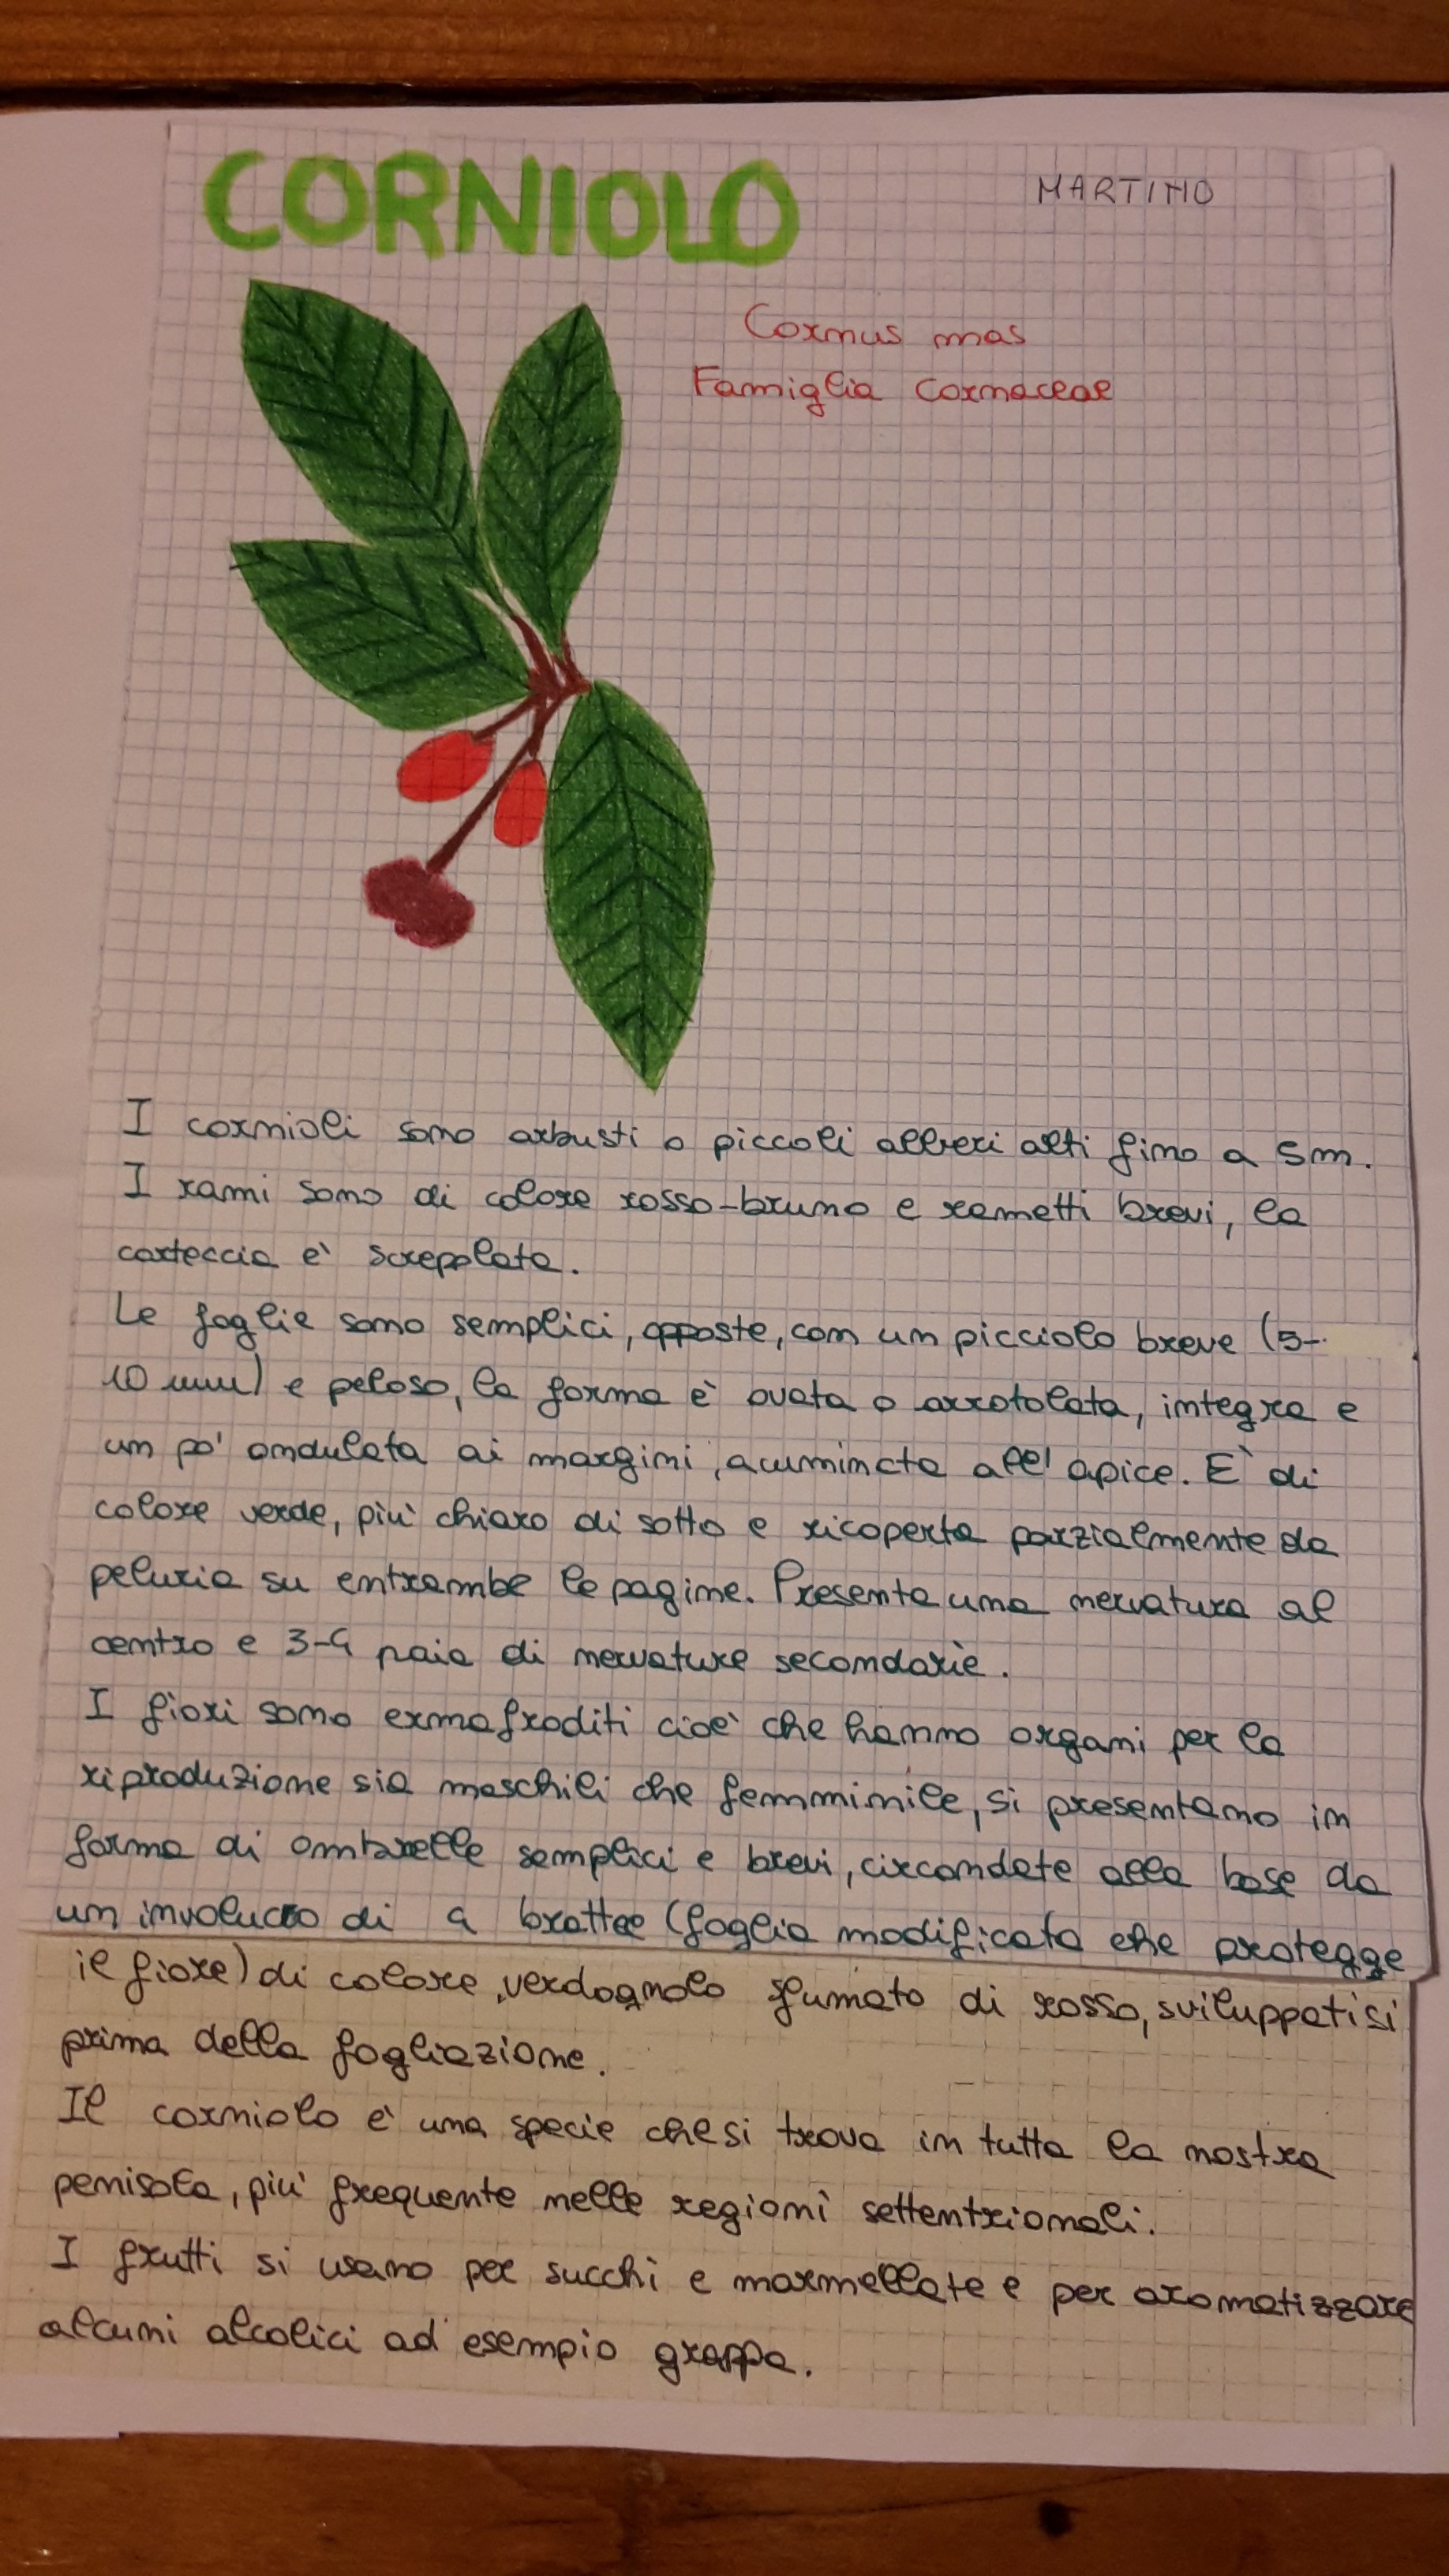 CORNIOLO
MARTINO
Cornus mas
Famiglia Cornaceae
I cornioli sono arbusti o piccoli alberi alti fino a 5m.
I rami sono di colore rosso-bruno e rametti brevi, la
corteccia e' screpolata.
Le foglie sono semplici, opposte, con un picciolo breve (5-
10 mm) e peloso, la forma è ovata o arrotolata, integra e
un po' ondulata ai margini, acuminata all'apice. È di
colore verde, piu' chiaro di sotto e ricoperta parzialmente da
peluria su entrambe le pagine. Presenta una nervatura al
centro e 3-4 paia di nervature secondarie.
I fiori sono ermafroditi cioe' che hanno organi per la
riproduzione sia maschili che femminile, si presentano in
forma di ombrelle semplici e brevi, circondate alla base da
un involucro di 4 brattee (foglia modificata che protegge
il fiore) di colore verdognolo sfumato di rosso, sviluppatisi
prima della fogliazione.
Il corniolo e' una specie che si trova in tutta la nostra
penisola, piu' frequente nelle regioni settentrionali.
I frutti si usano per succhi e marmellate e per aromatizzare
alcuni alcolici ad esempio grappa.